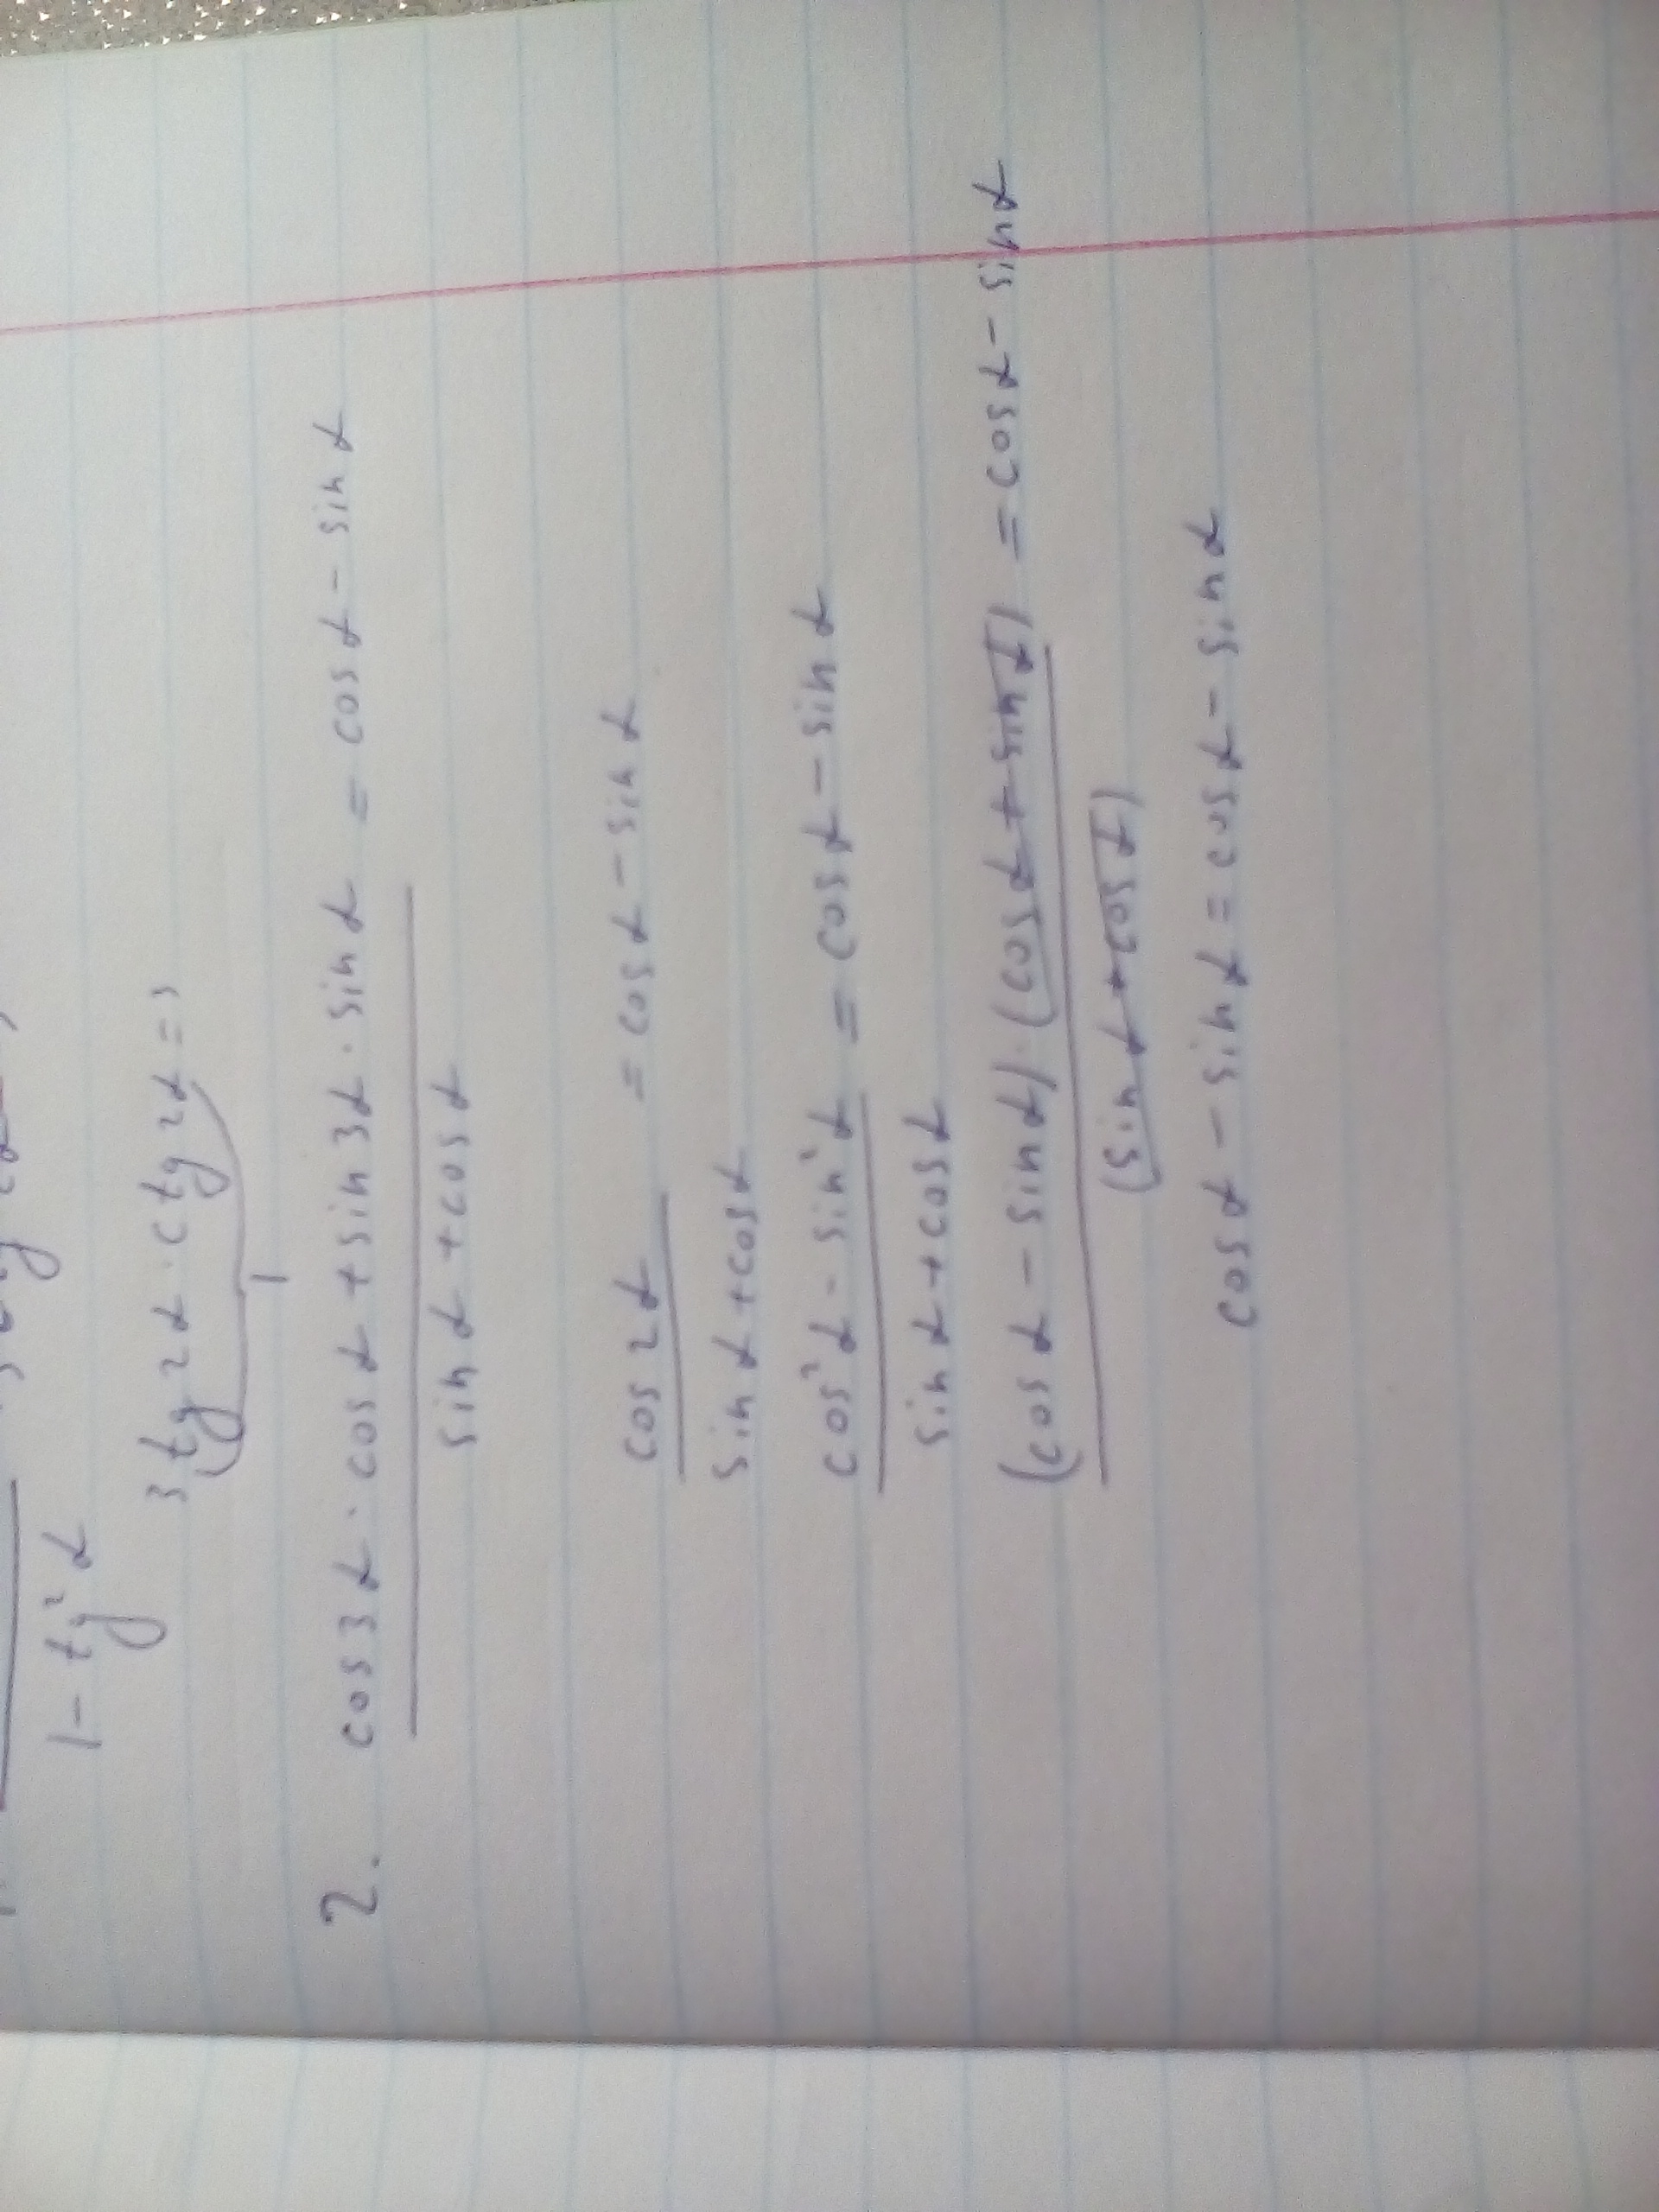 1 - tg²α
3 tg 2α · ctg 2α = 3
1
2. cos 3α · cos α + sin 3α · sin α = cos α - sin α
sin α + cos α
cos 2α = cos α - sin α
sin α + cos α
cos²α - sin²α = cos α - sin α
sin α + cos α
(cos α - sin α) · (cos α + sin α) = cos α - sin α
(sin α + cos α)
cos α - sin α = cos α - sin α